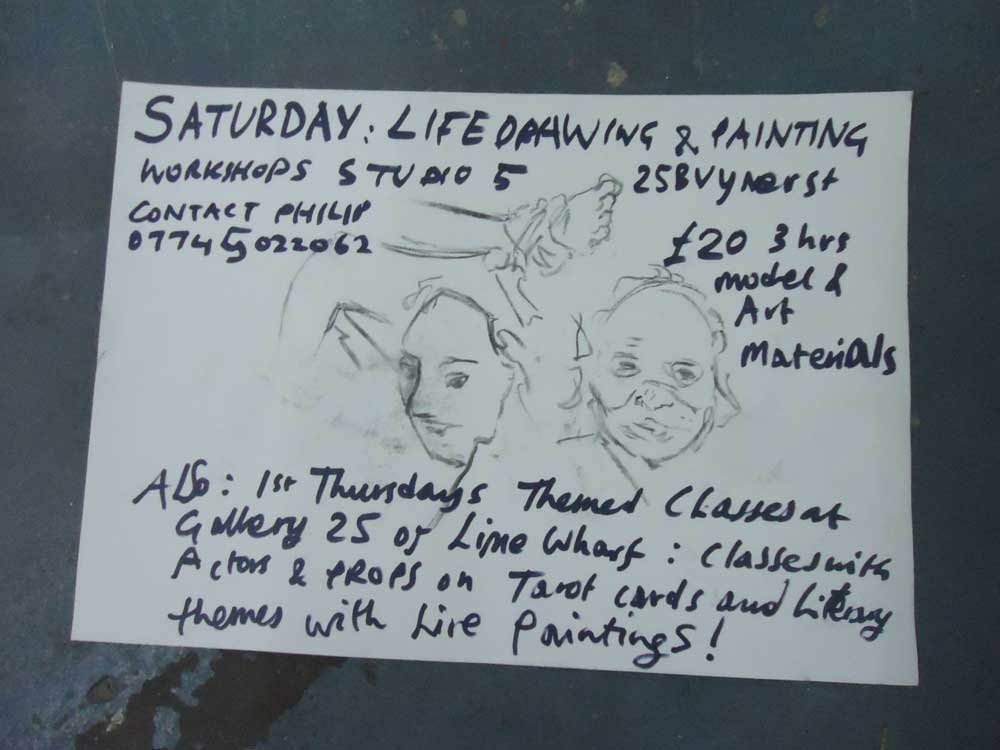 SATURDAY: LIFE DRAWING & PAINTING
WORKSHOPS STUDIO 5 25B Vyner St
CONTACT PHILIP
07745022062
£20 3 hrs
model &
Art
Materials
Also: 1st Thursdays Themed Classes at
Gallery 25 or Lime Wharf: Classes with
Actors & PROPS on Tarot cards and Literary
themes with Live Paintings!